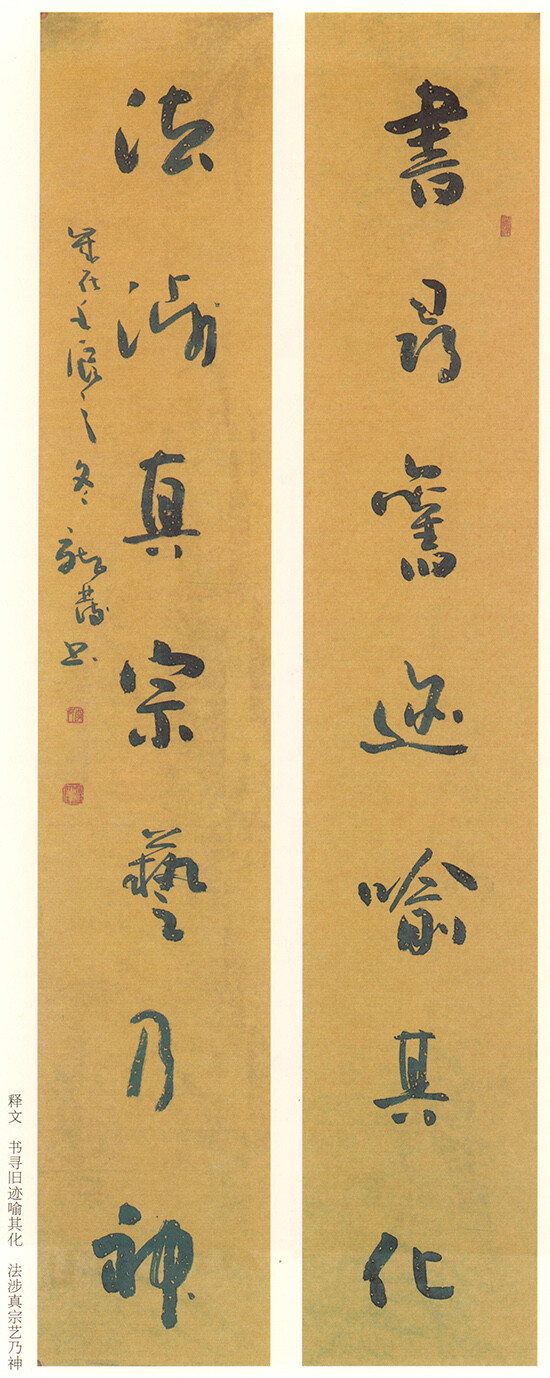 書尋舊迹喻其化
法涉真宗藝乃神
歲在壬辰之冬
释文 书寻旧迹喻其化 法涉真宗艺乃神